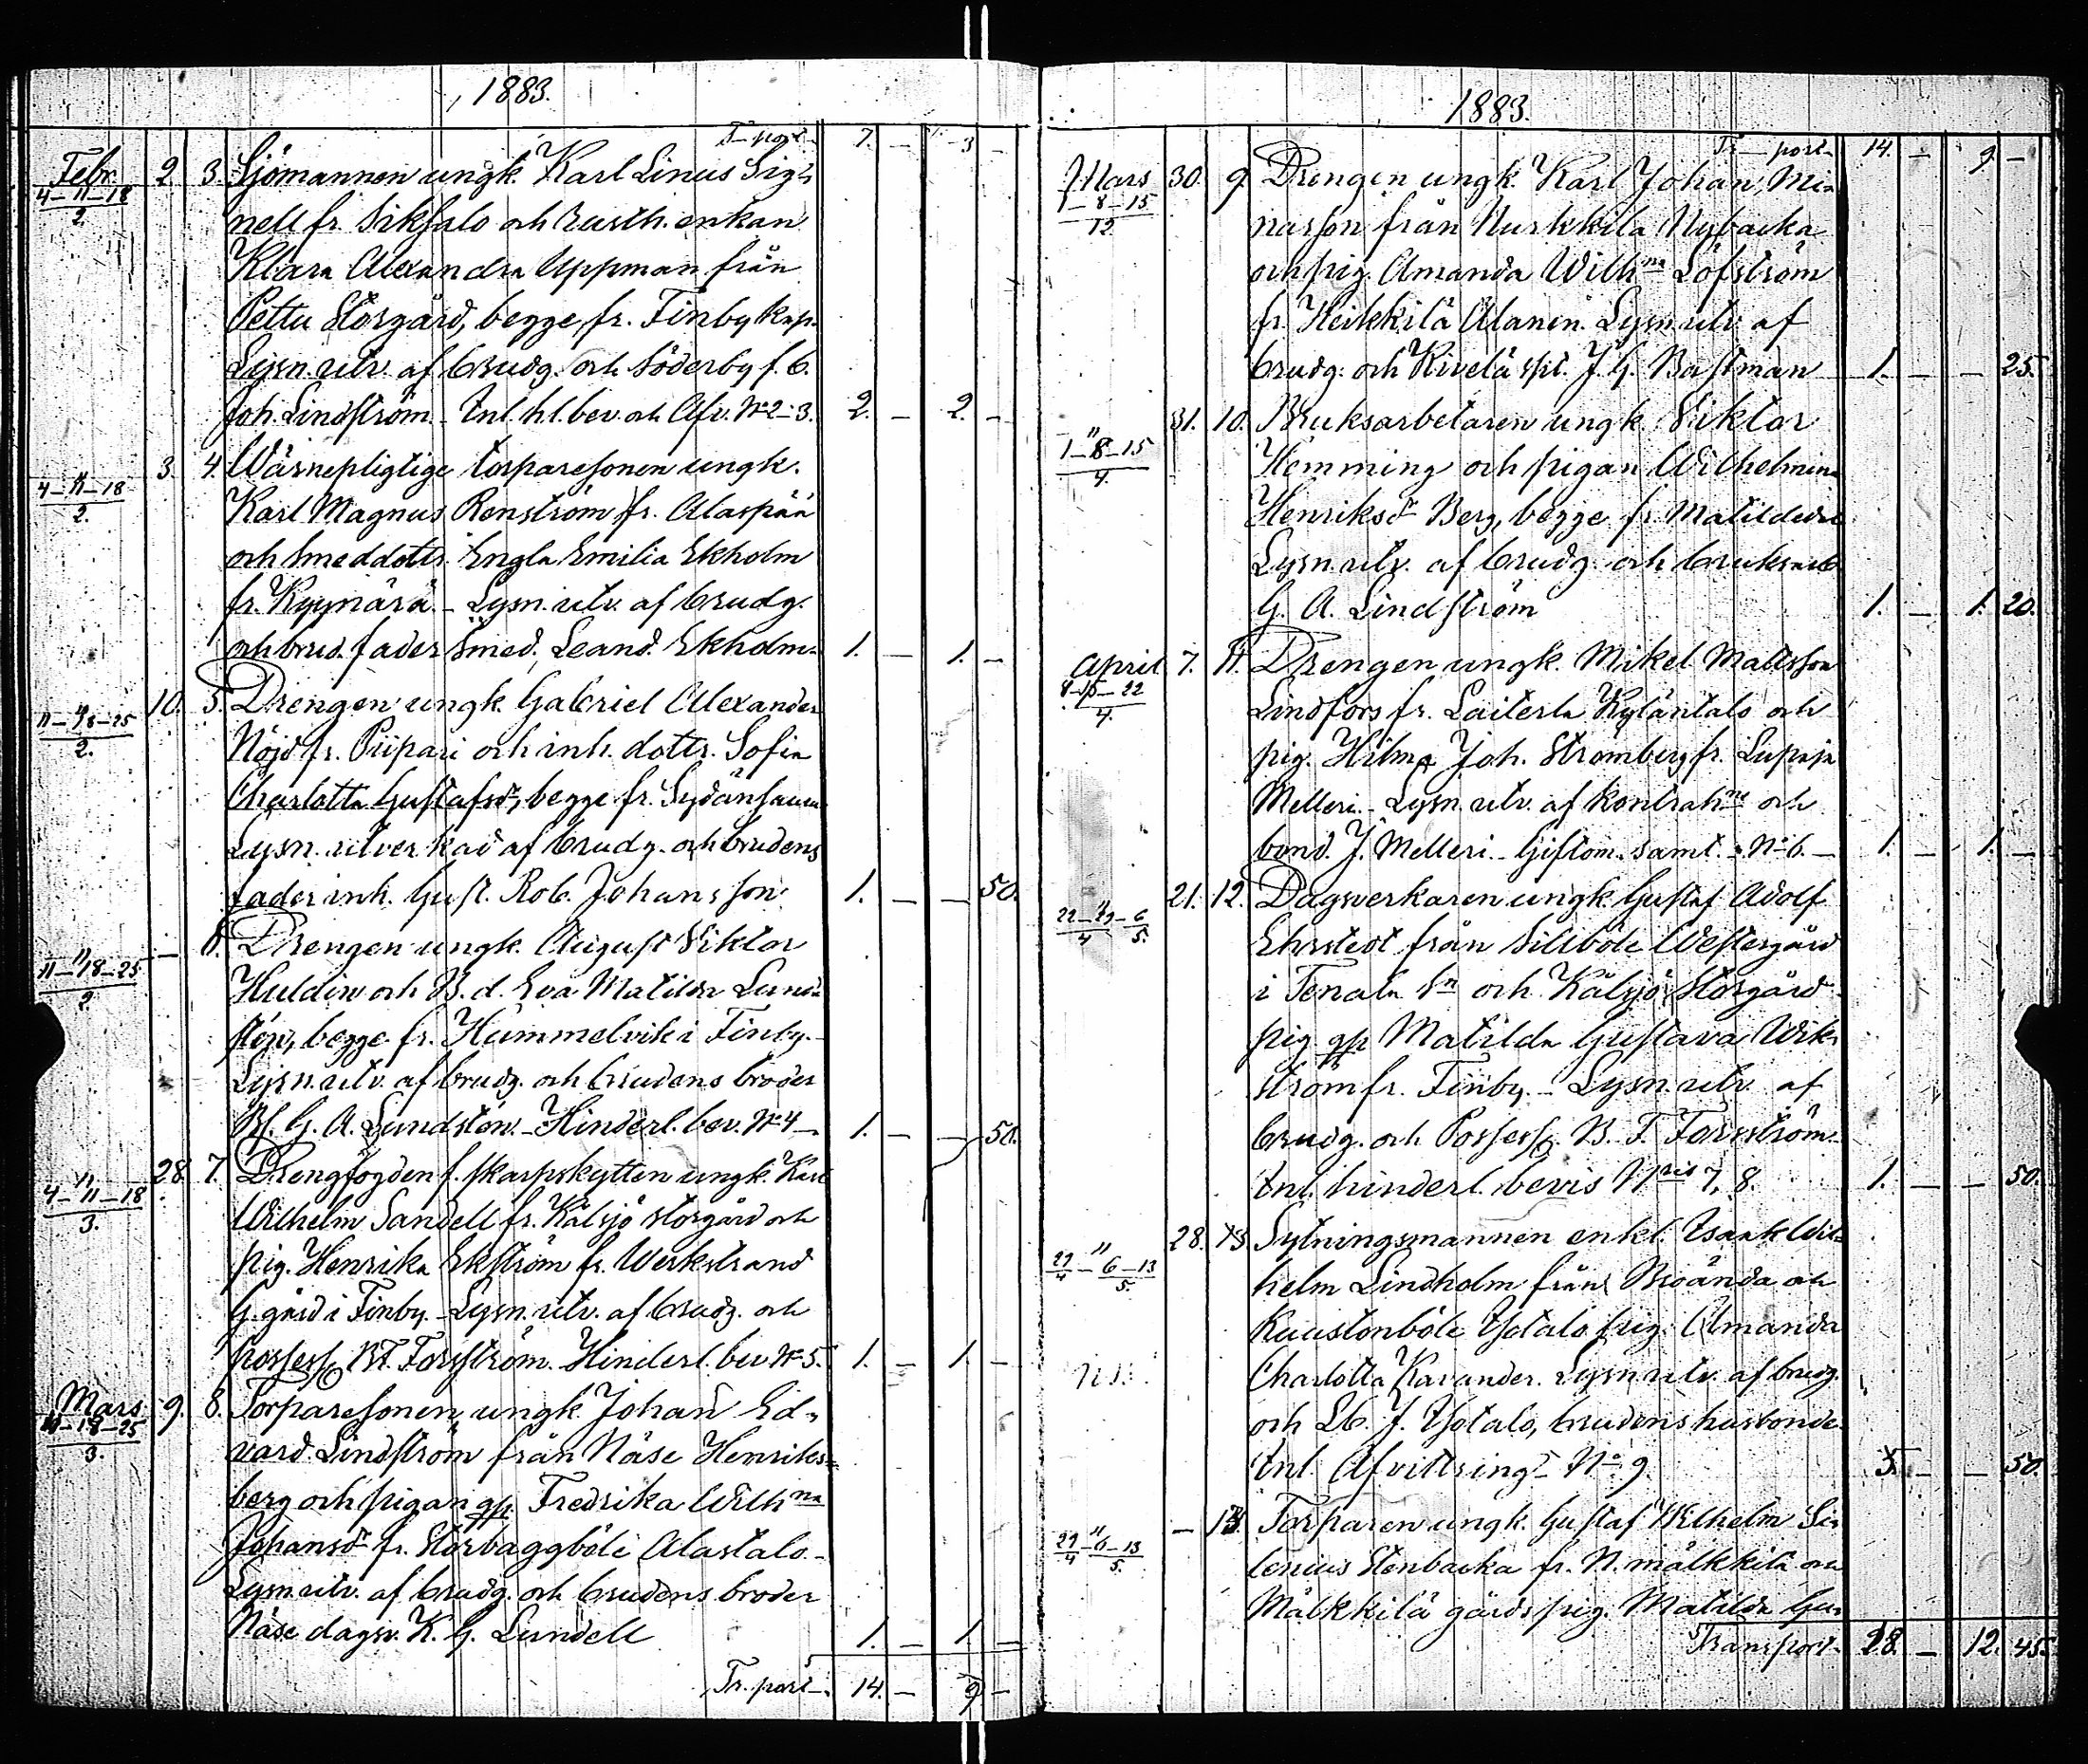 1883.
Tr. port 7. — 3 —
Febr. 2. 3. Sjömannen ungk. Karl Linus Sig-
4–11–18
2
nell fr. Siksalo och rusth. enkan
Klara Alexandra Uppman från
Pettu Storgård, begge fr. Finby kap.
Lysn. utv. af brudg. och Söderby f. b.
Joh. Lindström. – Inl. hl. bev. och Afv. No 2–3. 2. — 2. —
" 3. 4. Wärnepligtige torparesonen ungk.
4–11–18
2.
Karl Magnus Renström fr. Alaspää
och Smeddottr. Engla Emilia Ekholm
fr. Kyynärä. – Lysn. utv. af brudg.
och brud. fader Smed. Leand. Ekholm. 1. — 1. —
" 10. 5. Drengen ungk. Gabriel Alexander
11–18–25
2.
Nöjd fr. Piipari och inh. dottr. Sofia
Charlotta Gustafsdr, begge fr.
Lysn. utverkad af brudg. och brudens
fader inh. Gust. Rob. Johansson 1. — — 50.
" — 6. Drengen ungk. August Viktor
11–18–25
2
Huldin och B. d. Eva Matilda Lund-
stén, begge fr. Hummelvik i Finby.
Lysn. utv. af brudg. och brudens broder
Bl. G. A. Lundstén. – Hinderl. bev. No 4 — 1. — — 50.
" 28. 7. Drengfogden f. skarpskytten ungk. Karl
4–11–18
3.
Wilhelm Sandell fr. Kälsjö storgård och
pig. Henrika Ekström fr. Werkstrand
G. gård i Finby. – Lysn. utv. af brudg. och
possess. B. F. Forsström. Hinderl. bev. No 5. 1. — 1. —
Mars 9. 8. Torparesonen, ungk. Johan Ed-
11–18–25
3.
vard Lindström från Näse Henriks-
berg och pigan qp. Fredrika Wilhna
Johansdr fr. Storbaggböle Alastalo. –
Lysn. utv. af brudg. och brudens broder
Näse dagsv. K. G. Lundell 1. — 1. —
Tr. port 14. — 9 —
1883.
Tr. port 14. — 9. —
Mars 30. 9. Drengen ungk. Karl Johan Mi-
1–8–15
12
nasson från Nurkkila Nybacka
och pig. Amanda Wilhna Löfström
fr. Heikkilä Alanen. Lysn. utv. af
brudg. och Kivelä spl. J. G. Bastman 1. — — 25.
" 31. 10. Bruksarbetaren ungk. Viktor
1–8–15
4.
Hemming och pigan Wilhelmina
Henriksdr Berg, begge fr. Matildedal
Lysn. utv. af brudg. och bruksarb
G. A. Lindström 1. — 1. 20.
April 7. 11. Drengen ungk. Mikel Mattsson
8–15–22
4.
Lindfors fr. Laiterla Kyläntalo och
pig. Hilma Joh. Strömberg fr. Lupaja
Melleri. – Lysn. utv. af kontrahne och
bond. J. Melleri. – Giftom. samt. – No 6. — 1. — 1. —
" 21. 12. Dagsverkaren ungk. Gustaf Adolf
22–29–6
4 5.
Ehrstedt från Sillböle Westergård
i Tenala Sn och Kälsjö Storgård
pig qp Matilda Gustava Wik-
ström fr. Finby. – Lysn. utv. af
brudg. och Possess. B. F. Forsström.
Inl. hinderl. bevis Nris 7, 8. 1. — — 50.
" 28. 13. Sytningsmannen enkl. Isaak Wil-
29–6–13
4 5.
helm Lindholm från Broända och
Kuustonböle Isotalo pig. Amanda
Charlotta Kavander. Lysn. utv. af brudg.
och Lb. J. Isotalo, brudens husbonde.
Inl. Afvittring – No 9 5. — — 50.
" — 13. Torparen ungk. Gustaf Wilhelm Si-
29–6–13
4 5.
lenius Stenbacka fr. N. mälkkilä och
Mälkkilä gårds pig. Matilda Gu-
Transport 28. — 12. 45.